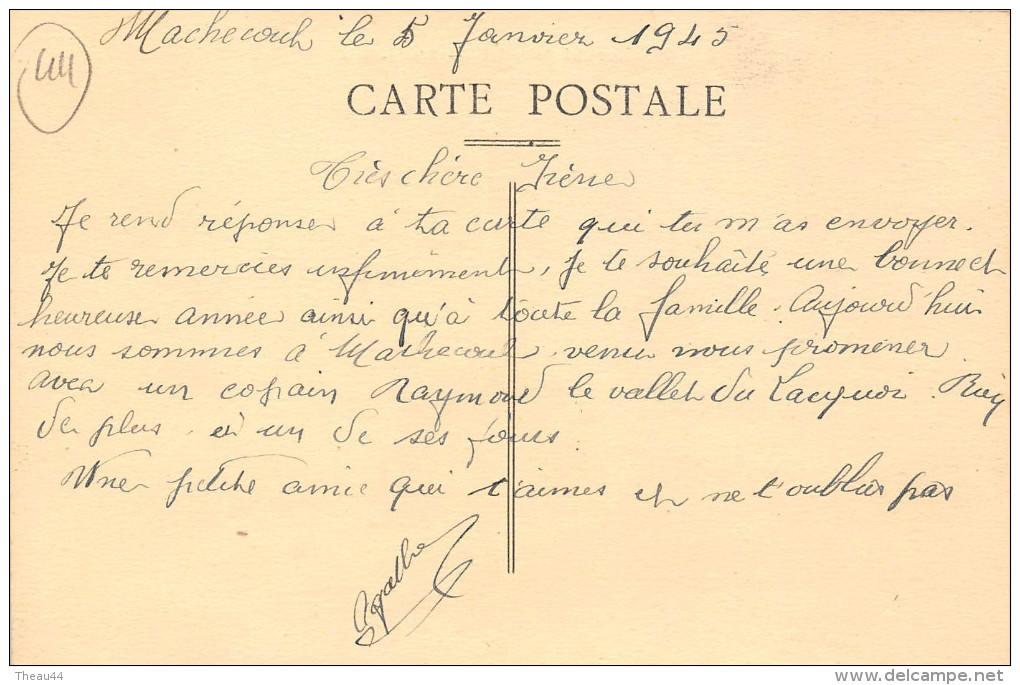 Machecoul le 5 Janvier 1945
44
CARTE POSTALE
Très chère Irène
Je rend réponse à ta carte qui tu m'as envoyer.
Je te remercies infiniment, je te souhaite une bonne et
heureuse année ainsi qu'à toute la famille. Aujourd'hui
nous sommes à Machecoul venu nous promener
avec un copain Raymond le vallet du Lacquoi. Rien
de plus. à un de ses jours.
Une petite amie qui t'aimes et ne t'oublie pas
Agathe
Theau44
www.delcampe.net